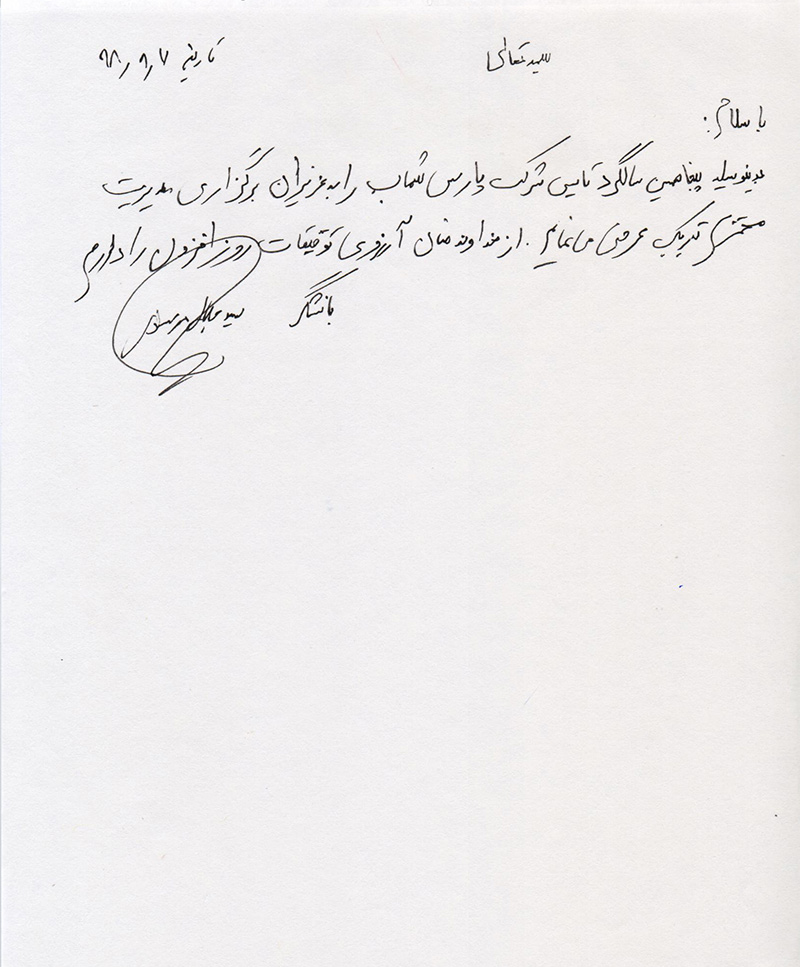 بسمه تعالی
تاریخ ۹۸/۸/۷
با سلام:
بدینوسیله پنجاهمین سالگرد تاسیس شرکت پارس شهاب را به عزیزان برگزاری مدیریت
محترم تبریک عرض می نمایم. از خداوند منان آرزوی توفیقات روز افزون را دارم
با تشکر سید